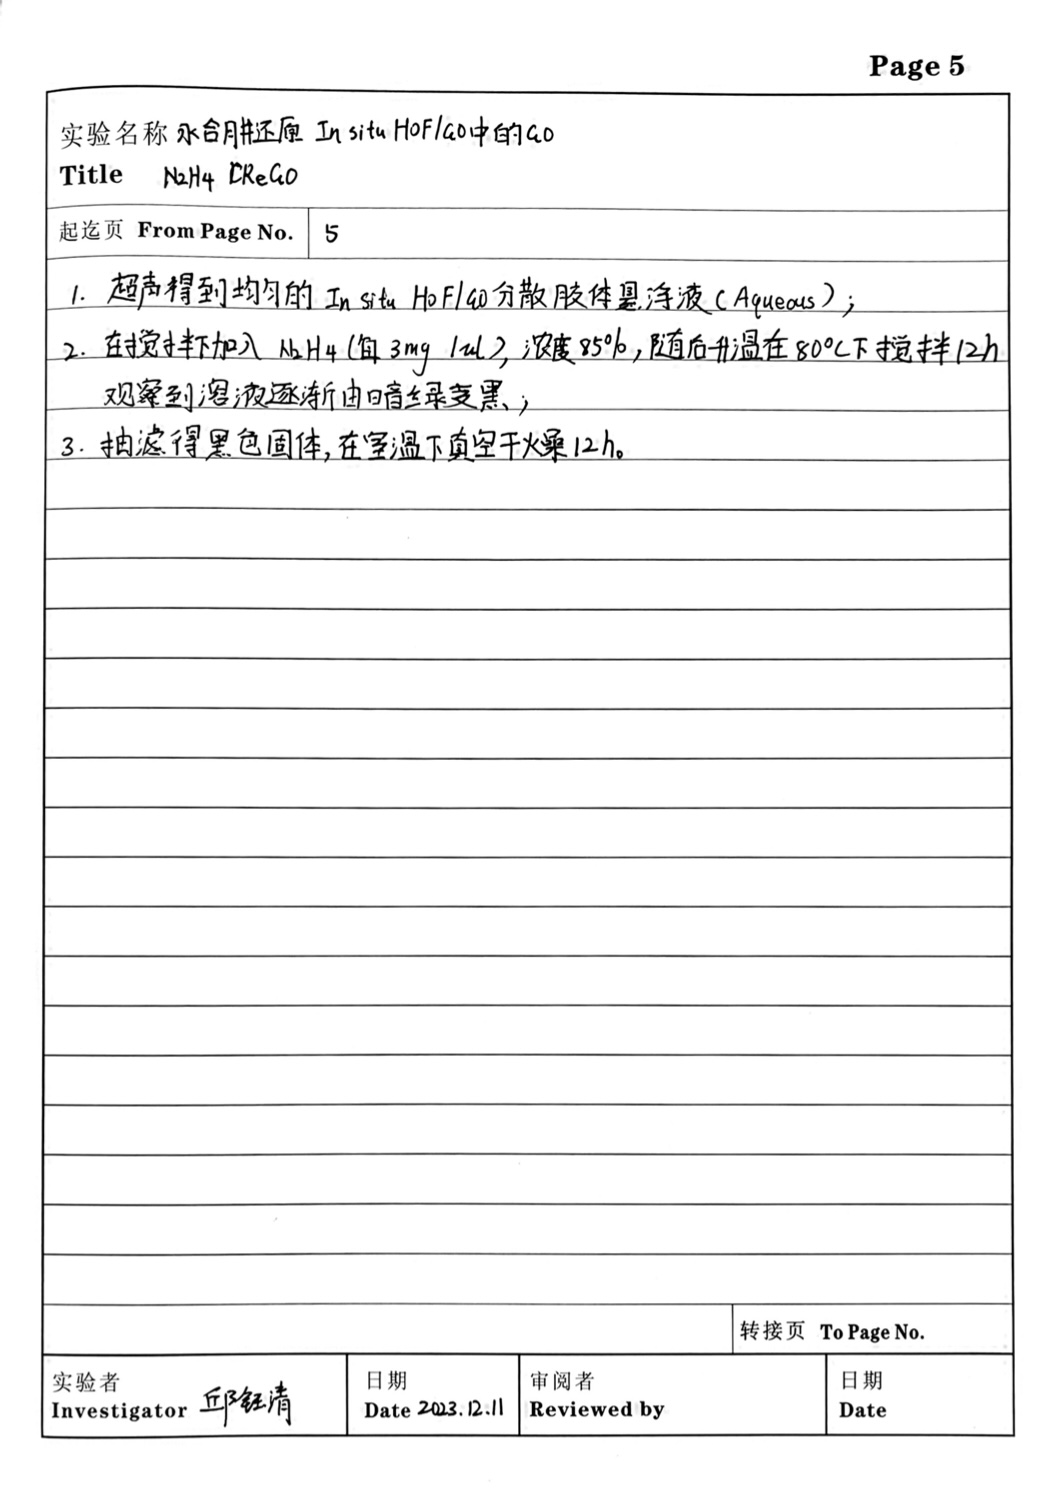 Page 5
实验名称 水合肼还原 In situ HOF/GO中的GO
Title N2H4 CReGO
起迄页 From Page No. 5
1. 超声得到均匀的 In situ HOF/GO分散胶体悬浮液(Aqueous);
2. 在搅拌下加入 N2H4(每 3mg 1uL), 浓度85%, 随后升温在80℃下搅拌12h
观察到溶液逐渐由暗绿变黑;
3. 抽滤得黑色固体, 在室温下真空干燥12h。
转接页 To Page No.
实验者 日期 审阅者 日期
Investigator 邱钰清 Date 2023.12.11 Reviewed by Date